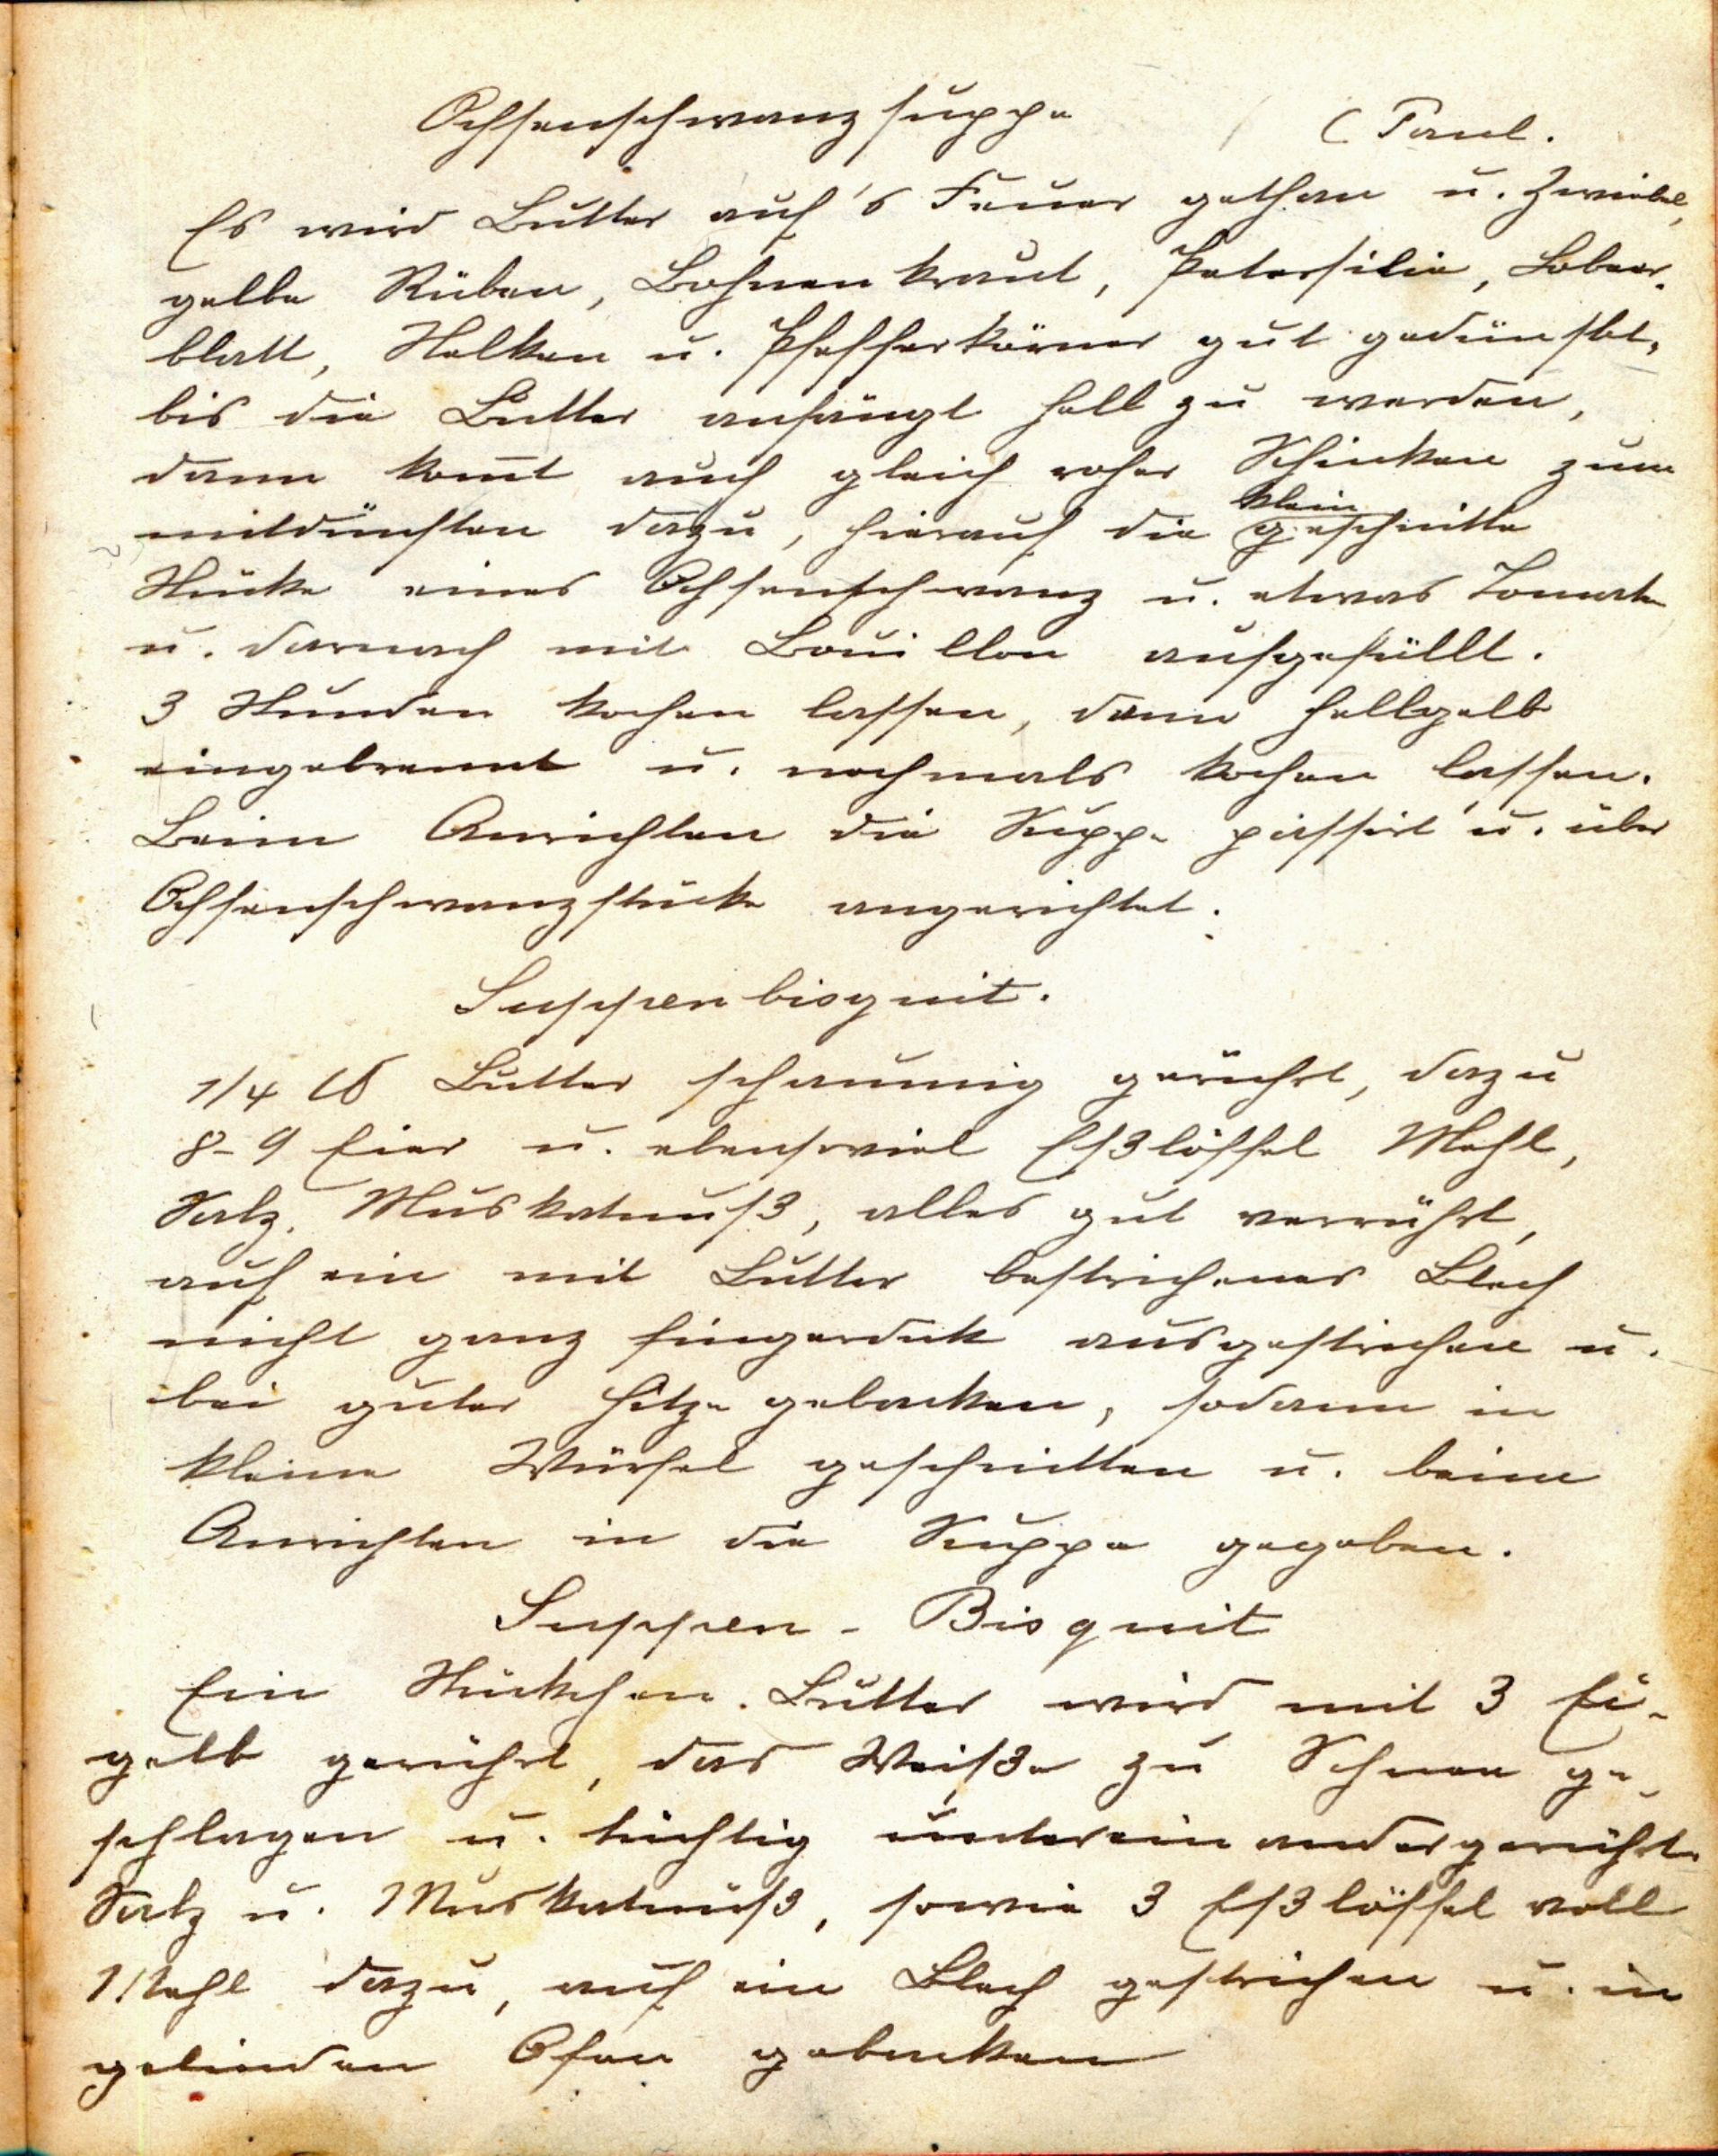 Ochsenschwanzsuppe (Paul.
Es wird Butter auf's Feuer gethan u. Zwiebel,
gelbe Rüben, Bohnenkraut, Petersilie, Lobeer-
blatt, Nelken u. Pfefferkörner gut gedünstet,
bis die Butter anfängt hell zu werden,
dann kom̄t auch gleich roher Schinken zum
mitdünsten dazu, hierauf die klein geschnitte
Stücke eines Ochsenschwanz u. etwas Tomate
u. darnach mit Bouillon aufgefüllt.
3 Stunden kochen lassen, dann hellgelb
eingebrannt u. nochmals kochen lassen.
Beim Anrichten die Suppe passirt u. über
Ochsenschwanzstücke angerichtet.
Suppenbisquit.
1/4 ℔ Butter schaumig gerührt, dazu
8-9 Eier u. ebensoviel Eßlöffel Mehl,
Salz, Muskatnuß, alles gut verrührt,
auf ein mit Butter bestrichenes Blech
nicht ganz fingerdick ausgestrichen u.
bei guter Hitze gebacken, sodann in
kleine Würfel geschnitten u. beim
Anrichten in die Suppe gegeben.
Suppen-Bisquit
Ein Stückchen Butter wird mit 3 Ei-
gelb gerührt, das Weiße zu Schnee ge-
schlagen u. tüchtig untereinandergerührt.
Salz u. Muskatnuß, sowie 3 Eßlöffel voll
Mehl dazu, auf ein Blech gestrichen u. in
gelinden Ofen gebacken